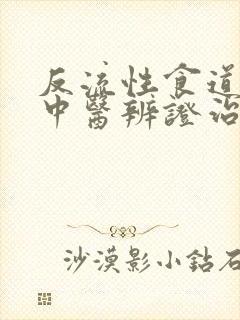 反流性食道
中醫辨證治
沙漠影小鉆石